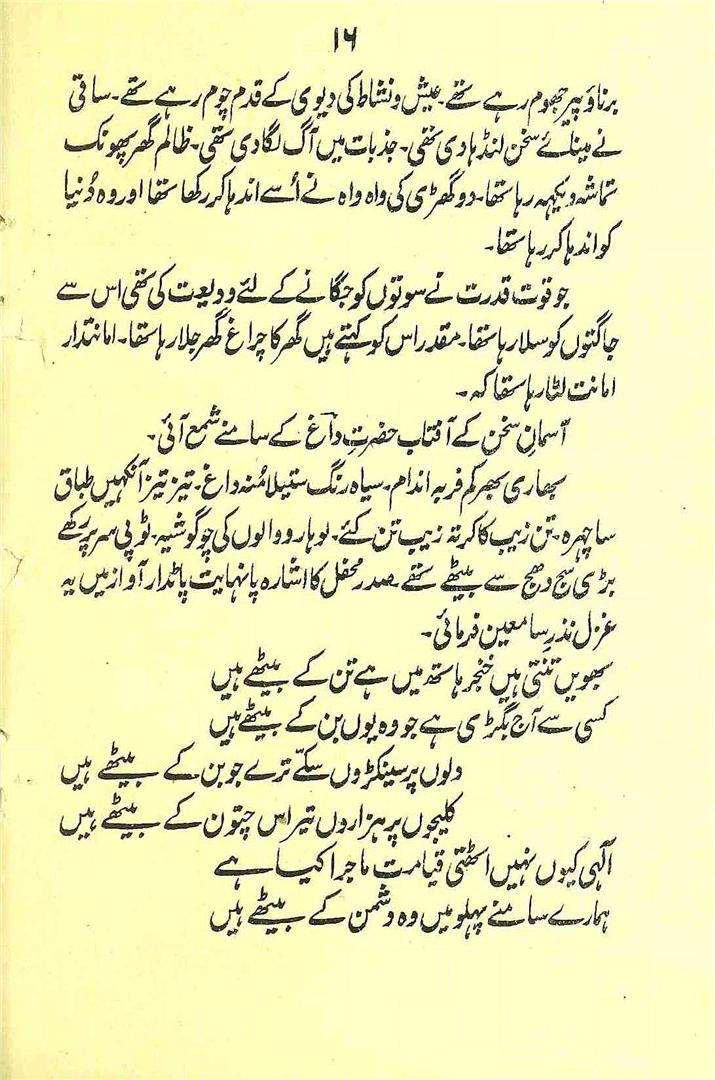 ۱۶
برنا و پیر جھوم رہے تھے۔ عیش و نشاط کی دیوی کے قدم چوم رہے تھے۔ ساقی
نے مینائے سخن لنڈہا دی تھی۔ جذبات میں آگ لگا دی تھی۔ ظالم گھر پھونک
تماشہ دیکہہ رہا تھا۔ دو گھڑی کی واہ واہ نے اُسے اندہا کر رکھا تھا اور وہ دُنیا
کو اندہا کر رہا تھا۔
جو قوت قدرت نے سوتوں کو جگانے کے لئے ودیعت کی تھی اس سے
جاگتوں کو سلا رہا تھا۔ مقدر اس کو کہتے ہیں گھر کا چراغ گھر جلا رہا تھا۔ امانتدار
امانت لٹا رہا تھا کہ۔
آسمانِ سخن کے آفتاب حضرتِ داغ کے سامنے شمع آئی۔
بھاری بھرکم فربہ اندام۔ سیاہ رنگ ستیلا مُنہ داغ۔ تیز تیز آنکہیں طباق
سا چہرہ۔ تن زیب کا کرتہ زیب تن کئے۔ لوہارو والوں کی چوگوشیہ۔ ٹوپی سر پر رکھے
بڑی سج دھج سے بیٹھے تھے۔ صدر محفل کا اشارہ پا نہایت پاٹدار آواز میں یہ
غزل نذرِ سامعین فرمائی۔
بھویں تنتی ہیں خنجر ہاتھ میں ہے تن کے بیٹھے ہیں
کسی سے آج بگڑی ہے جو وہ یوں بن کے بیٹھے ہیں
دلوں پر سینکڑوں سکّے ترے جوبن کے بیٹھے ہیں
کلیجوں پر ہزاروں تیر اس چتون کے بیٹھے ہیں
آلٰہی کیوں نہیں اٹھتی قیامت ماجرا کیا ہے
ہمارے سامنے پہلو میں وہ دشمن کے بیٹھے ہیں